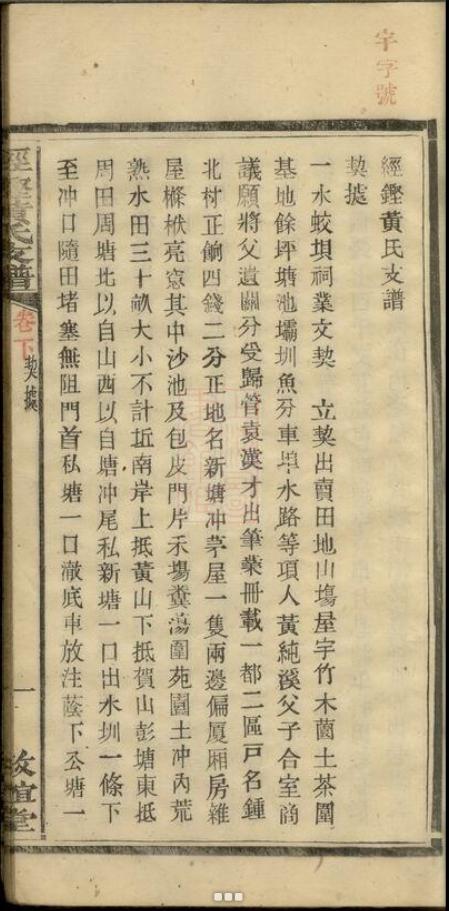 宇字號
經鏗黃氏支譜
契據
一水蛟垻祠業文契 立契出賣田地山塲屋宇竹木薗土茶圍
基地餘坪塘池壩圳魚分車埠水路等項人黃純溪父子合室商
議願將父遺關分受歸管袁漢才出筆業冊載一都二區戸名鍾
北材正餉四錢二分正地名新塘冲茅屋一隻兩邊偏厦廂房雜
屋樑栿亮窓其中沙池及包皮門片禾塲糞蕩圍苑園土冲內荒
熟水田三十畝大小不計近南岸上抵黃山下抵賀山彭塘東抵
周田周塘北以自山西以自塘冲尾私新塘一口出水圳一條下
至冲口隨田堵塞無阻門首私塘一口澈底車放注蔭下公塘一
黃氏支譜
卷下
契據
一
敦誼堂